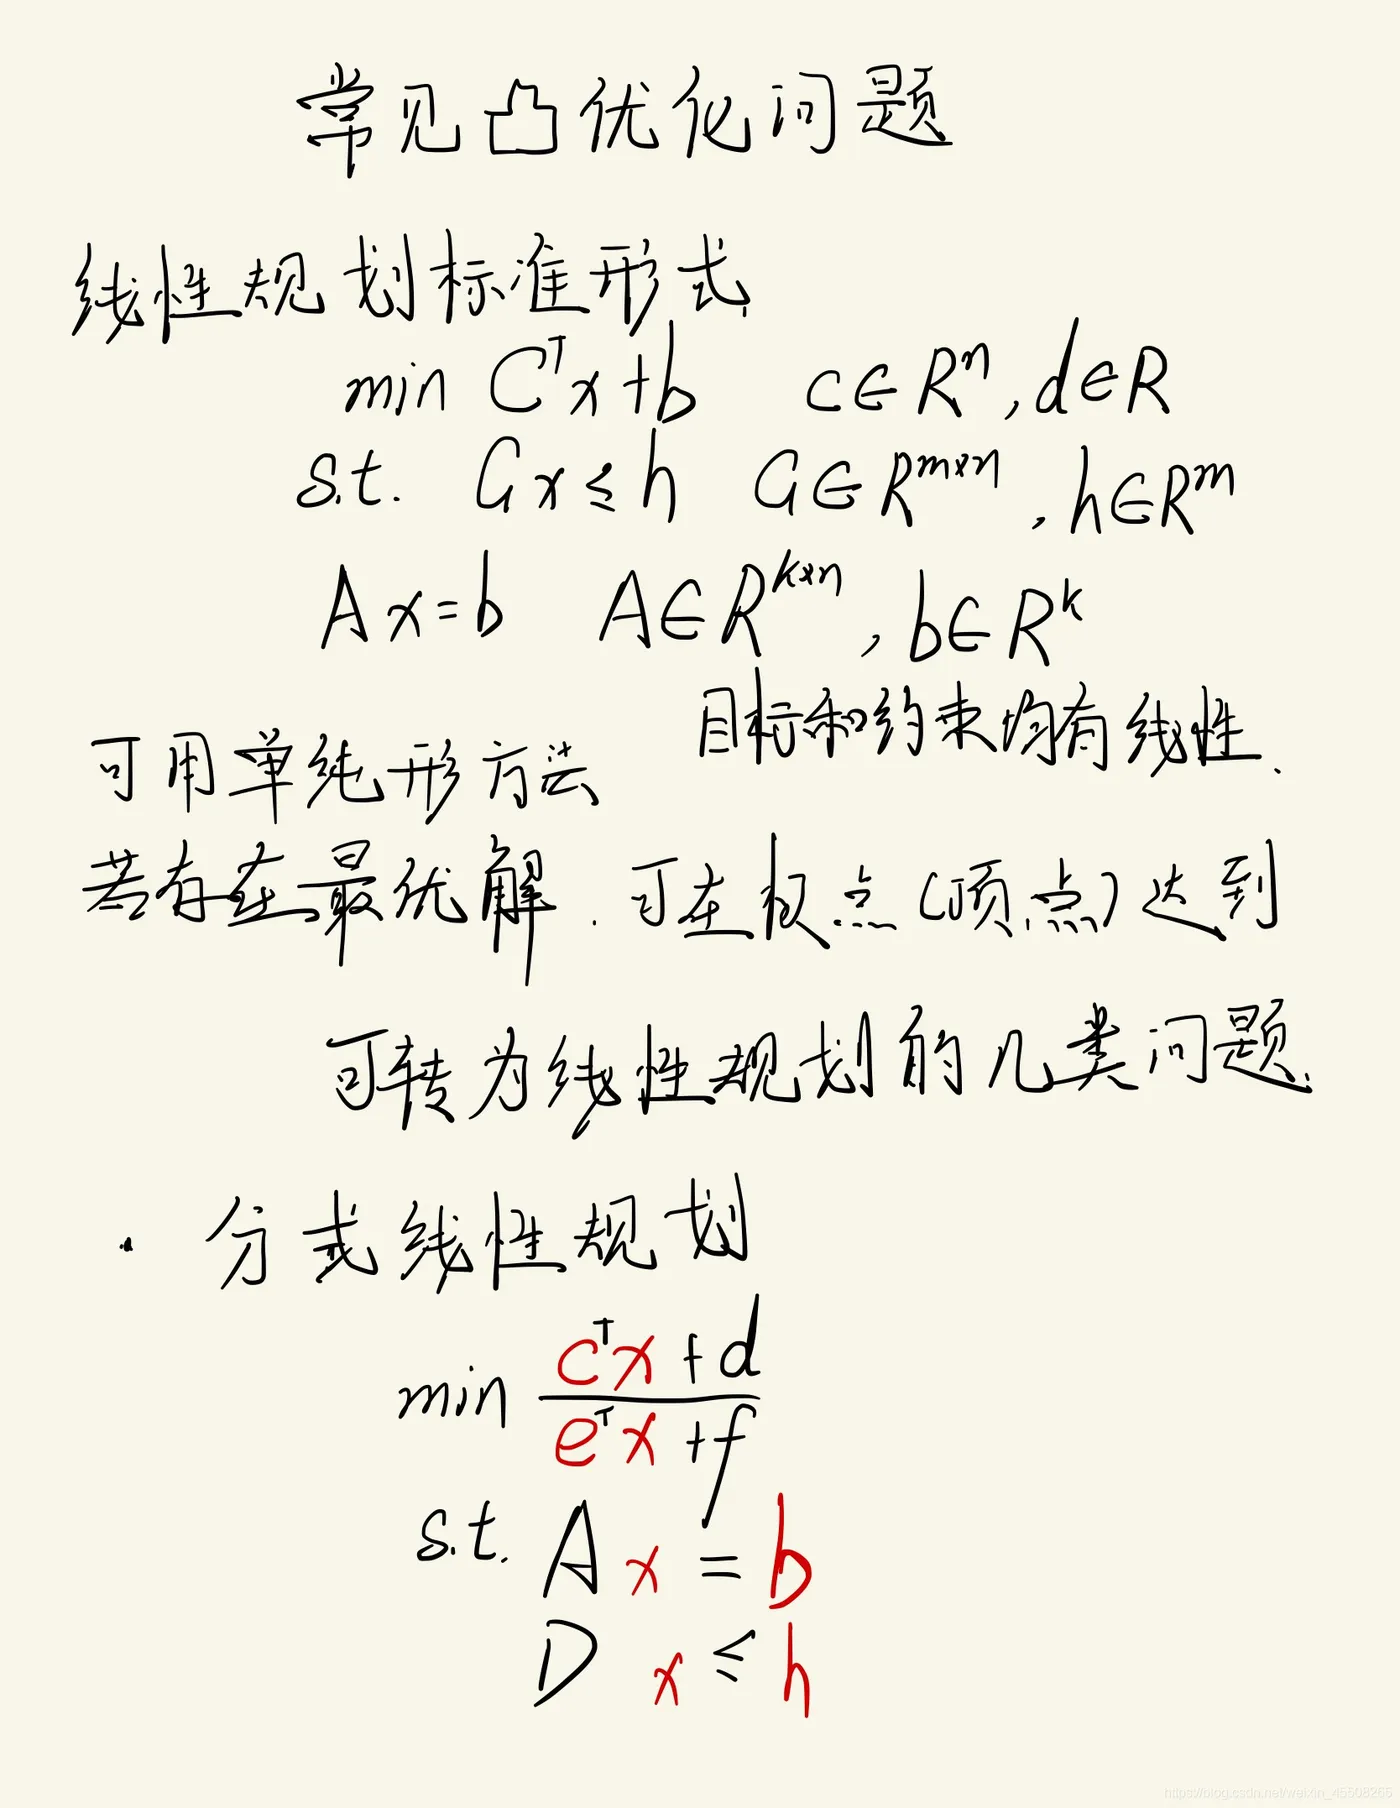 常见凸优化问题
线性规划标准形式
min Cᵀx+b c∈Rⁿ, d∈R
s.t. Gx≤h G∈Rᵐˣⁿ, h∈Rᵐ
Ax=b A∈Rᵏˣⁿ, b∈Rᵏ
目标和约束均有线性.
可用单纯形方法
若存在最优解.可在极点(顶点)达到
可转为线性规划的几类问题.
· 分式线性规划
min (cᵀx+d)/(eᵀx+f)
s.t. Ax = b
D x ≤ h
https://blog.csdn.net/weixin_45508265